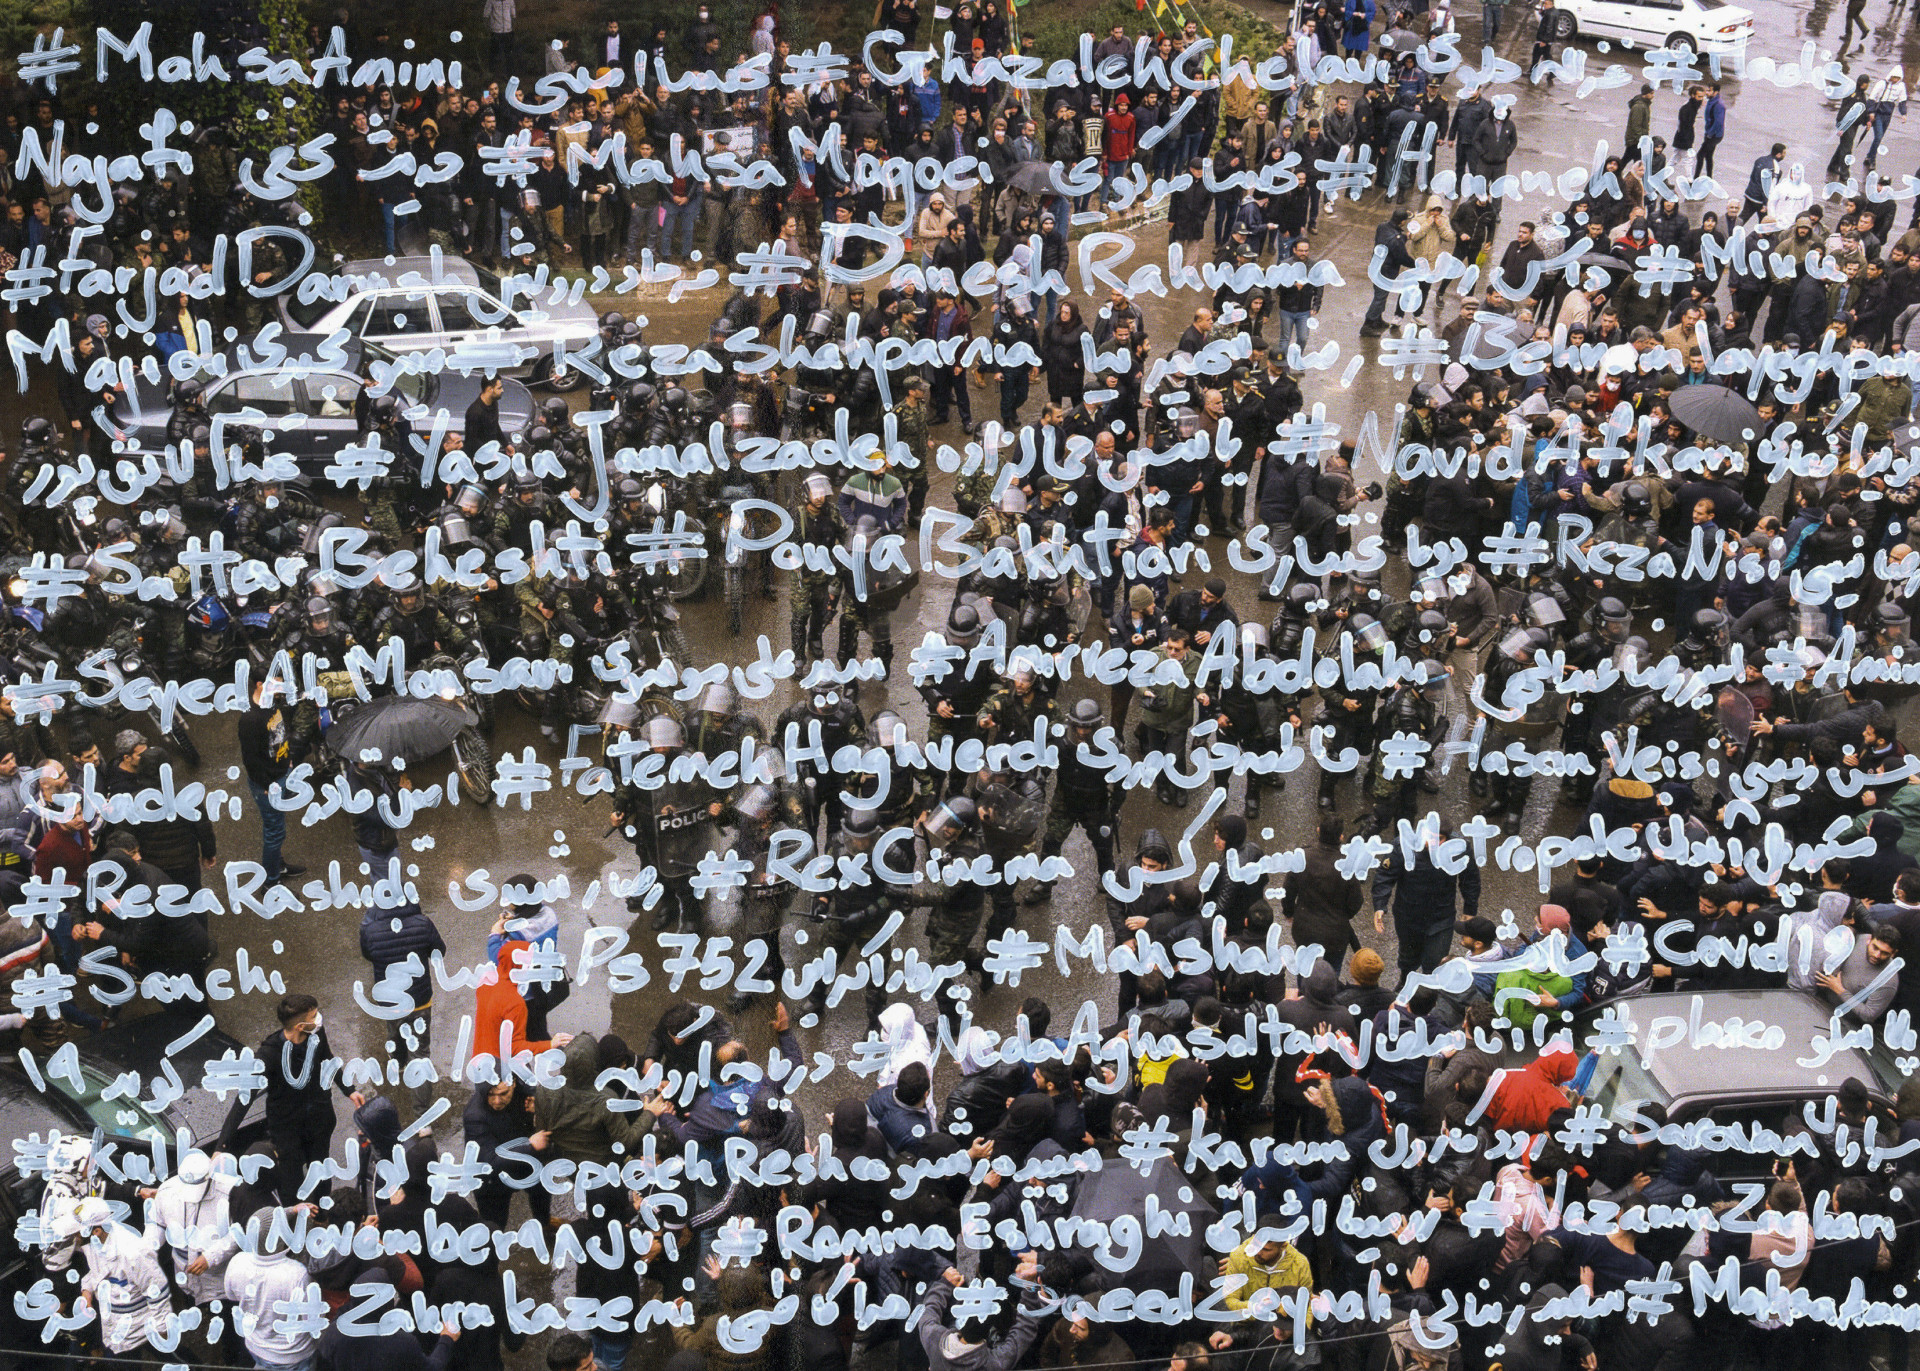 #MahsaAmini مهسا امینی #GhazalehChelavi غزاله چلاوی #Hadis
Najafi حدیث نجفی #Mahsa Mogoei مهسا موگویی #Hananeh kia حنانه
#FarjadDarvish فرجاد درویش #DaneshRahnama دانش رهنما #Minu
Majidi مینو مجیدی #RezaShahparnia رضا شهپرنیا #Behnam layeghpour
بهنام لایق‌پور #YasinJamalzadeh یاسین جمالزاده #NavidAfkari نوید افکاری
#SattarBeheshti #PouyaBakhtiari پویا بختیاری #RezaNisi رضا نیسی
#SeyedAliMousavi سید علی موسوی #AmirrezaAbdolahi امیررضا عبداللهی #Amin
Ghaderi امین قادری #FatemehHaghverdi فاطمه حق‌وردی #HasanVeisi حسن ویسی
#RezaRashidi رضا رشیدی #RexCinema سینما رکس #Metropole متروپل آبادان
#Sanchi سانچی #Ps752 هواپیمای اوکراین #Mahshahr ماهشهر #Covid19
کووید ۱۹ #Urmia lake دریاچه ارومیه #NedaAghasoltan ندا آقاسلطان #plasco پلاسکو
#Kulbar کولبر #SepidehReshno سپیده رشنو #karoun رود کارون #Saravan سراوان
#November آبان ۹۸ #RominaEshraghi رومینا اشراقی #NazaninZaghari
نازنین زاغری #Zahrakazemi زهرا کاظمی #SaeedZeynali سعید زینالی #MahsaAmini
POLICE